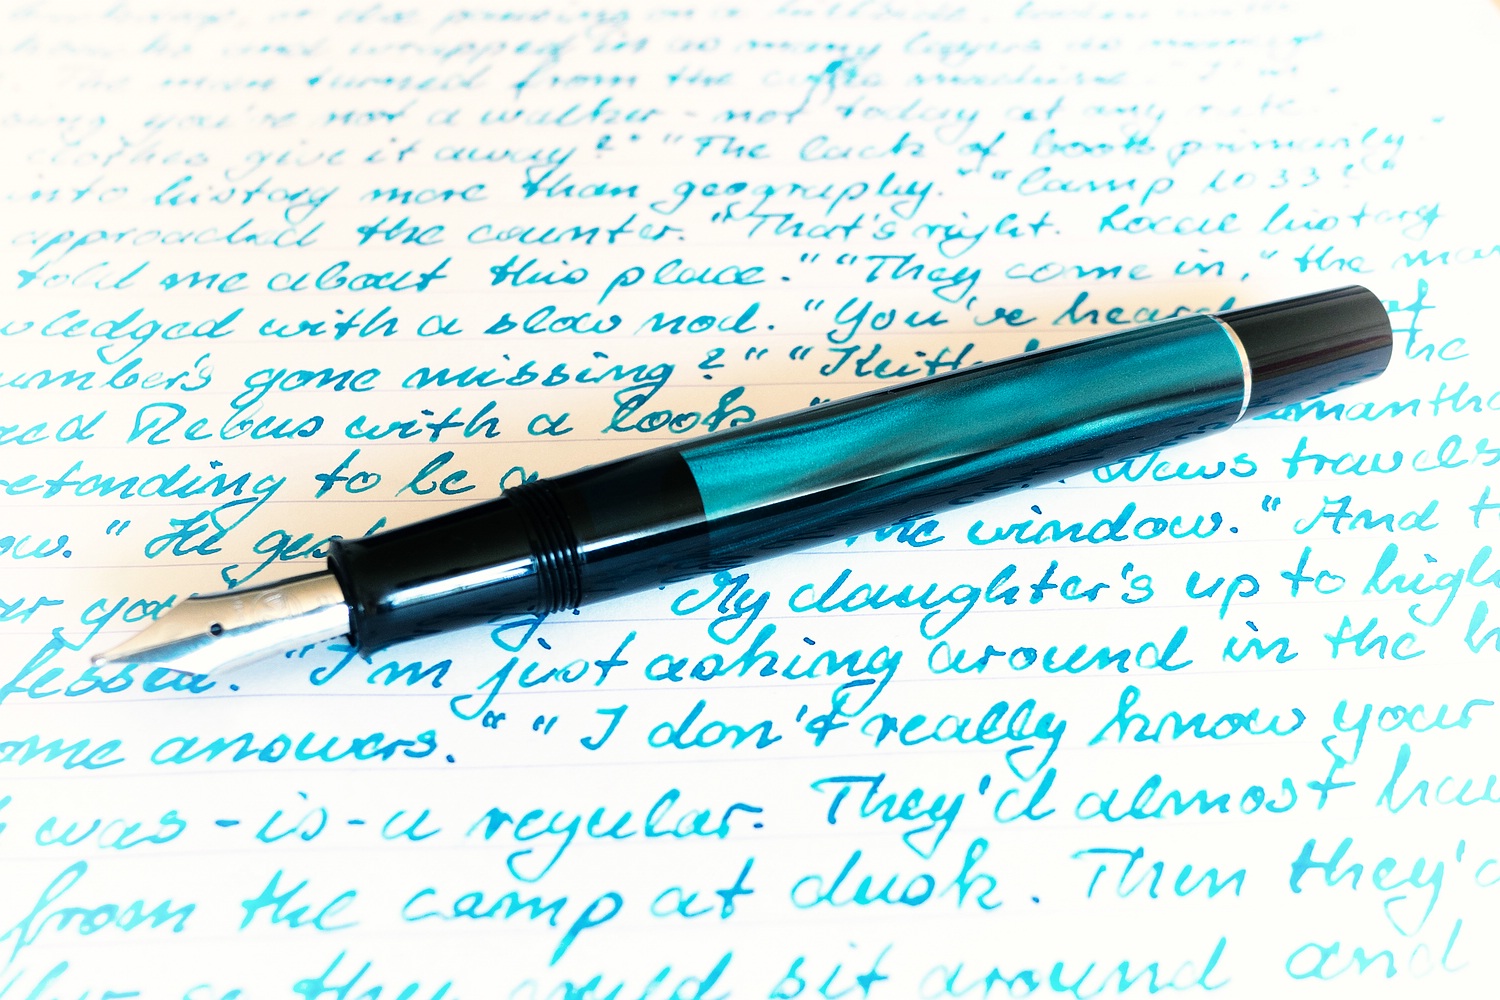 and wrapped in as many layers as
The man turned from the coffee machine. "I'm
you're not a walker - not today at any rate."
clothes give it away?" "The lack of boots primarily.
into history more than geography." "Camp 1033?"
approached the counter. "That's right. Local history
told me about this place." "They come in," the man
with a slow nod. "You've heard of
gone missing?" "Keith the
Rebus with a look. "
to be a News travels
." "He the window." And
you "My daughter's up to high
"I'm just asking around in the
answers." "I don't really know your
was - is - a regular. They'd almost have
from the camp at dusk. Then they'd
so they could sit around and